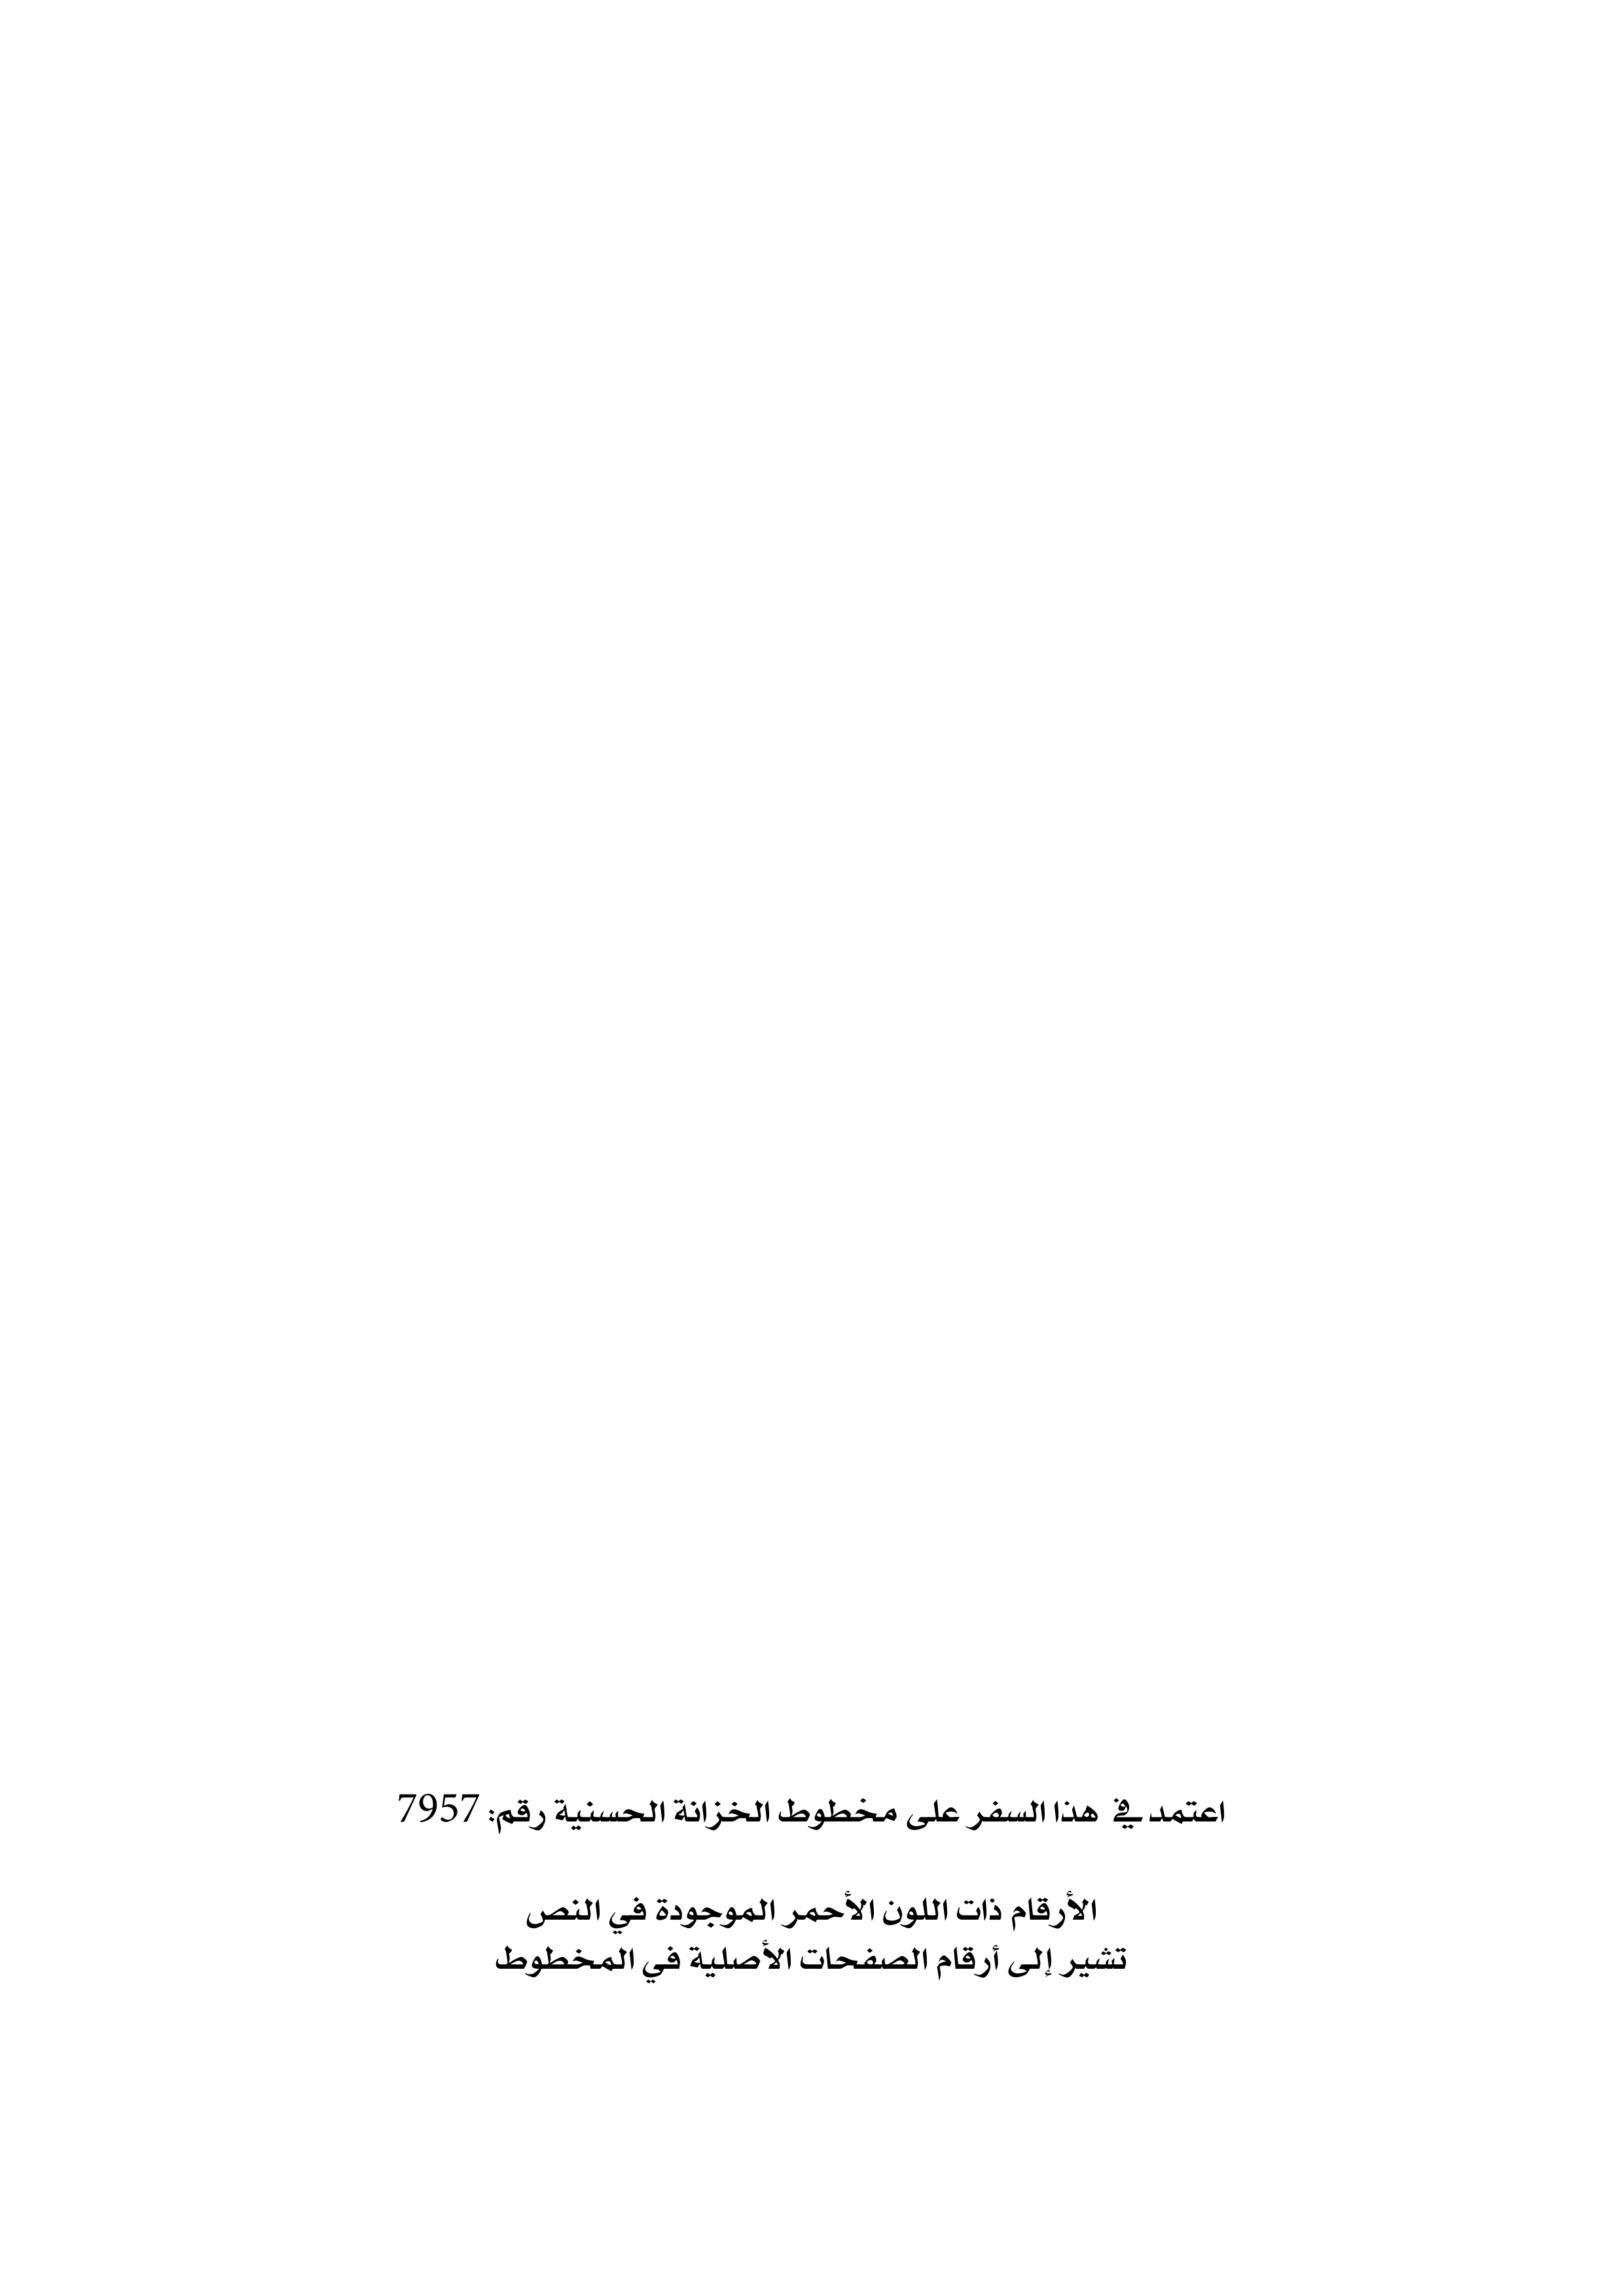 اعتمد في هذا السفر على مخطوط الخزانة الحسنية رقم: 7957
الأرقام ذات اللون الأحمر الموجودة في النص
تشير إلى أرقام الصفحات الأصلية في المخطوط